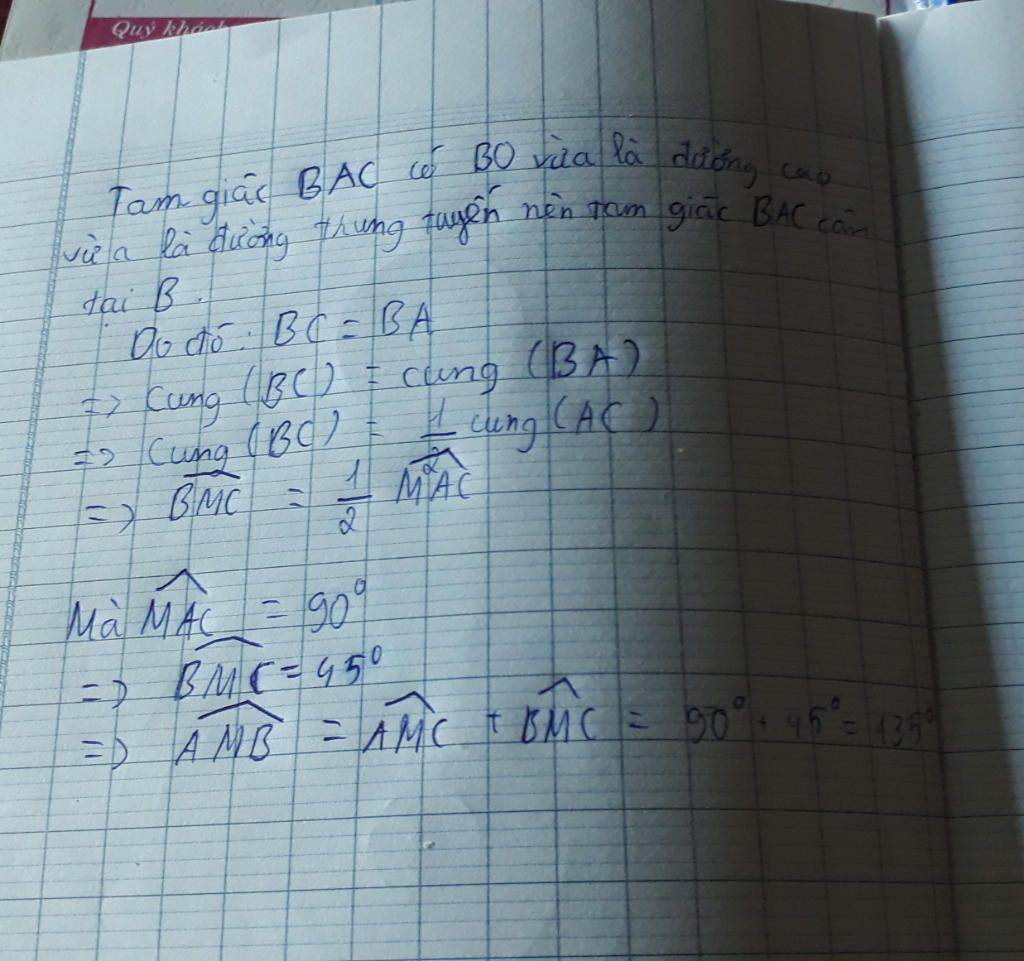 Quý khác
Tam giác BAC có BO vừa là đường cao
vừa là đường thung tuyến nên tam giác BAC cân
tại B.
Do đó: BC = BA
=> Cung (BC) = cung (BA)
=> Cung (BC) = 1/2 cung (AC)
=> BMC = 1/2 MAC
Mà MAC = 90°
=> BMC = 45°
=> AMB = AMC + BMC = 90° + 45° = 135°